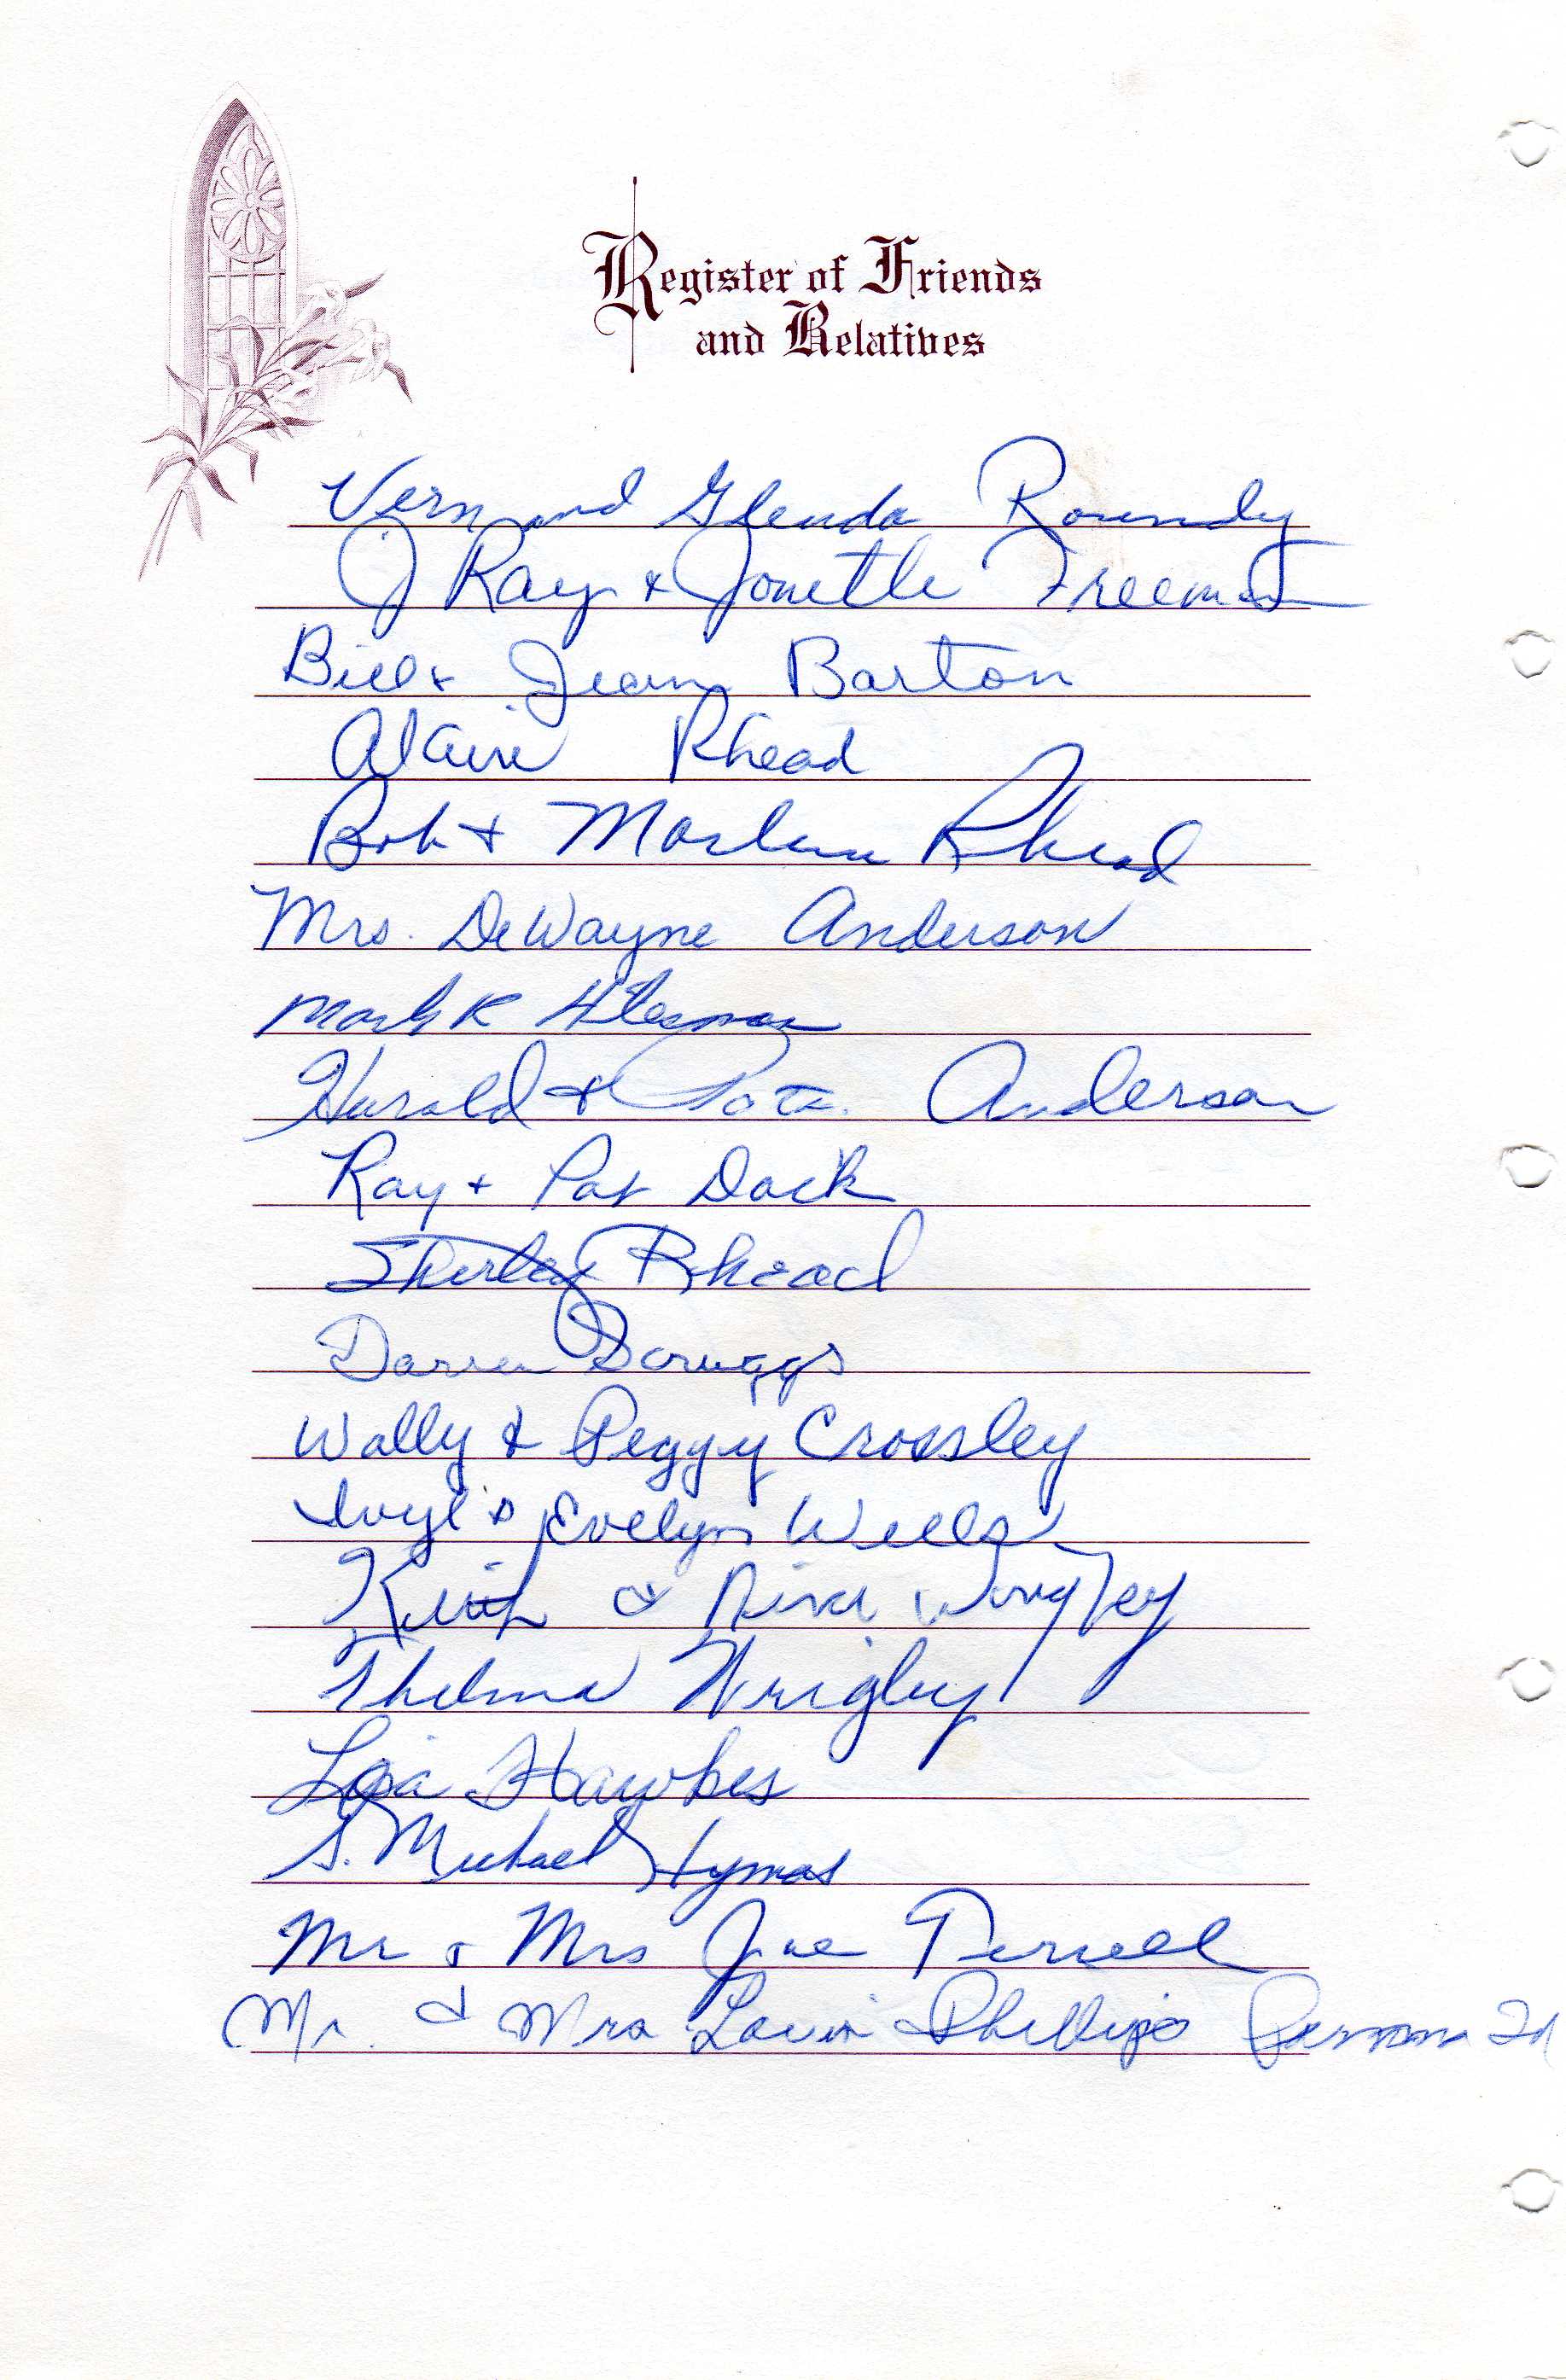 Register of Friends
and Relatives
Vern and Glenda Roundy
J Ray & Jonette Freeman
Bill & Jean Barton
Alaire Rhead
Bob + Marlene Rhead
Mrs. DeWayne Anderson
Mark R
Harold & Anderson
Ray + Pat Dack
Shirley Rhead
Darren Scruggs
Wally & Peggy Crossley
& Evelyn Wells
Keith & Nina
Thelma Wrigley
Hawkes
S. Michael Hymas
Mr & Mrs Joe Terrell
Mr. & Mrs Phillips